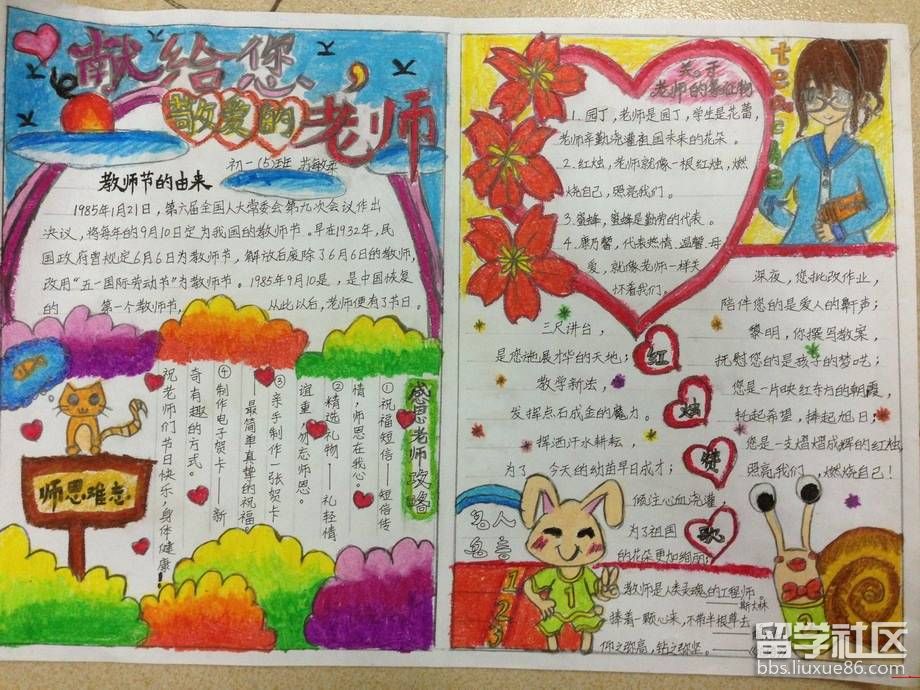 献给您、
敬爱的老师
初一(5)班
教师节的由来
1985年1月21日，第六届全国人大常委会第九次会议作出
决议，将每年的9月10日定为我国的教师节。早在1932年，民
国政府曾规定6月6日为教师节，解放后废除了6月6日的教师节，
改用“五一国际劳动节”为教师节。1985年9月10是，是中国恢复
的 第一个教师节， 从此以后，老师便有了节日。
感恩老师攻略
①祝福短信——短信传
情，师恩在我心。
②精选礼物——礼轻情
谊重，勿忘师恩。
③亲手制作一张贺卡
——最简单真挚的祝福
④制作电子贺卡——新
奇有趣的方式。
祝老师们节日快乐、身体健康！
师恩难忘
关于
老师的象征物
1.园丁，老师是园丁，学生是花蕾，
老师辛勤浇灌祖国未来的花朵。
2.红烛，老师就像一根红烛，燃
烧自己，照亮我们。
3.蜜蜂，蜜蜂是勤劳的代表。
4.康乃馨，代表热情、温馨、母
爱，就像老师一样关
怀着我们。
红烛赞歌
三尺讲台，
是您施展才华的天地；
教学新法，
发挥点石成金的魔力。
挥洒汗水耕耘，
为了 今天的幼苗早日成才；
倾注心血浇灌，
为了祖国
的花朵更加绚丽；
深夜，您批改作业，
陪伴您的是爱人的鼾声；
黎明，你撰写教案，
抚慰您的是孩子的梦呓；
您是一片映红东方的朝霞，
牦起希望，捧起旭日；
您是一支熠熠成辉的红烛，
照亮我们，燃烧自己！
名人
名言
1
2
3
1
教师是人类灵魂的工程师。
——斯大林
捧着一颗心来，不带半根草去
仰之弥高，钻之弥坚。
留学社区
bbs.liuxue86.com